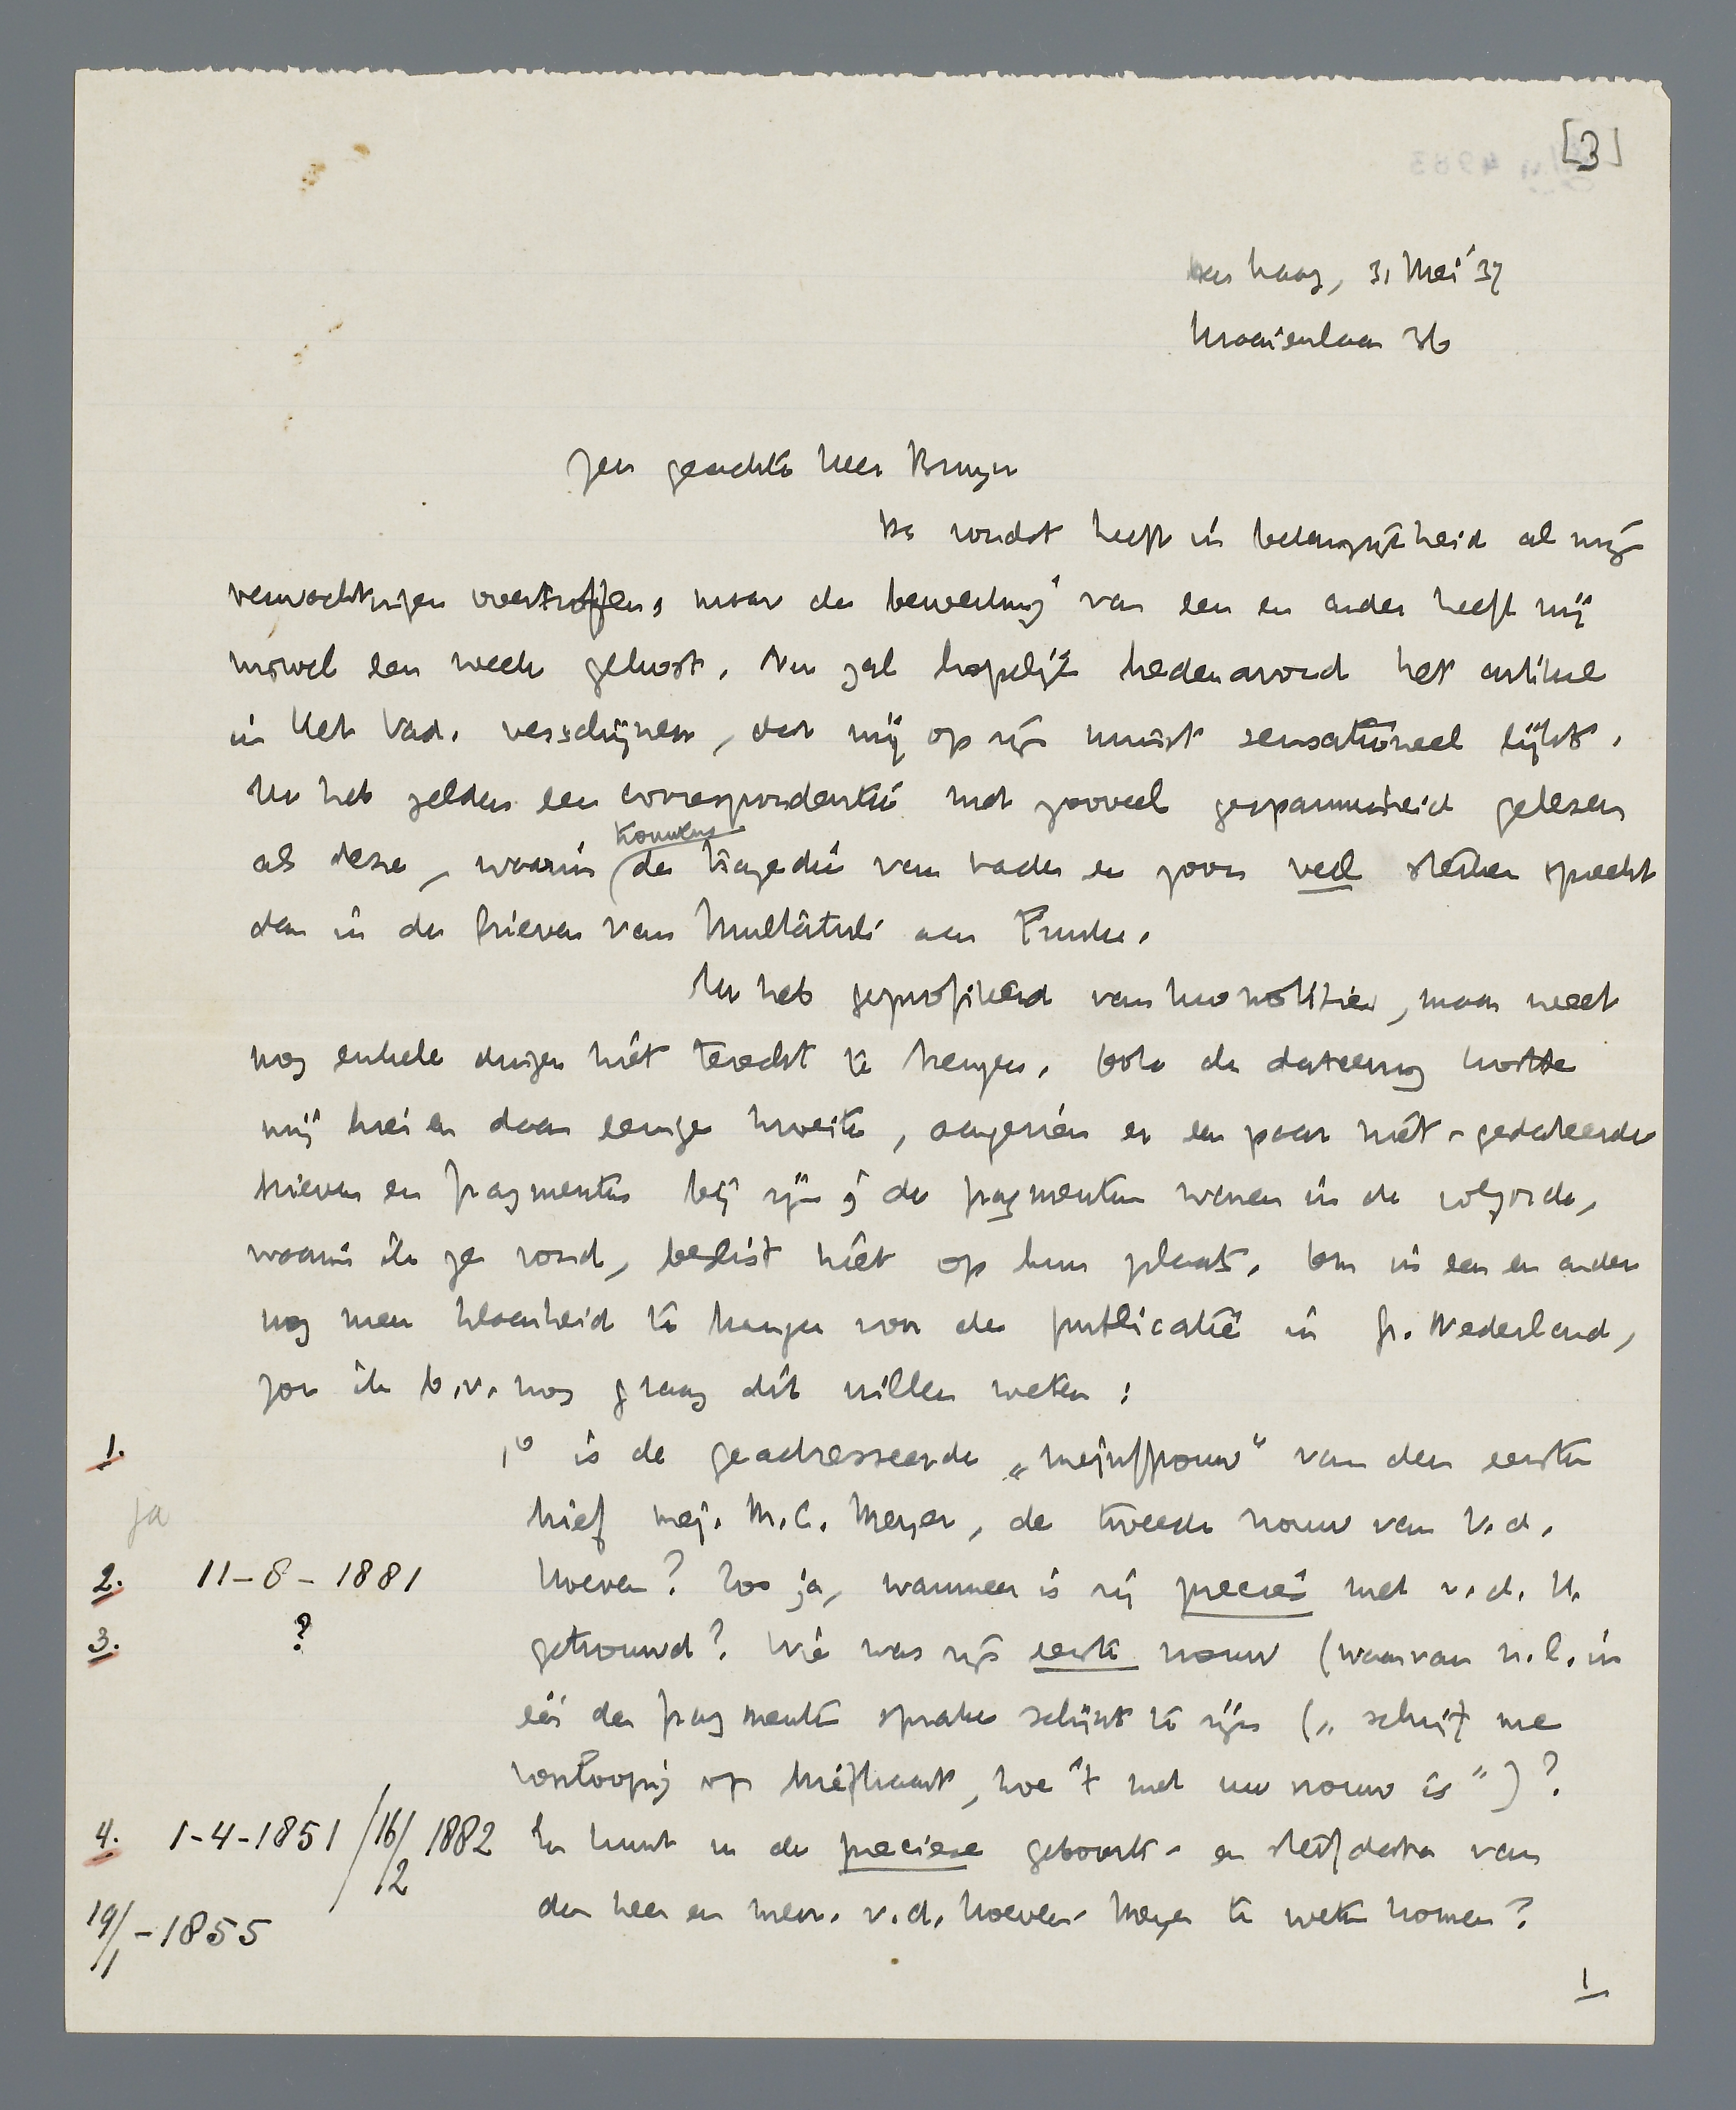 [3]
Den Haag, 31 Mei '37
Kraaienlaan 36
Zeer geachte Heer Bruyn
De vondst heeft in belangrijkheid al mijn
verwachtingen overtroffen; maar de bewerking van een en ander heeft mij
novel een week gekost. Nu zal hopelijk hedenavond het artikel
in Het Vad. verschijnen, dat mij op zijn minst sensationeel lijkt.
Ik heb zelden een correspondentie met zooveel gespannenheid gelezen
als deze, waarin de tragedie van vader en zoon veel sterker spreekt
Kouwens
dan in de brieven van Multatuli aan Funke.
Ik heb geprofiteerd van Uw notities, maar weet
nog enkele dingen niet terecht te brengen. Ook de dateering kostte
mij hier en daar eenige moeite, aangezien er een paar niet-gedateerde
brieven en fragmenten bij zijn; de fragmenten waren in de volgorde,
waarin ik ze vond, beslist niet op hun plaats. Om in een en ander
nog meer klaarheid te brengen voor de publicatie in Gr. Nederland,
zou ik b.v. nog graag dit willen weten:
1.
1° is de geadresseerde „mejuffrouw" van den eersten
ja
brief mej. M.C. Meyer, de tweede vrouw van v.d.
2. 11-8-1881
Hoeven? Zoo ja, wanneer is zij precies met v.d. H.
3. ?
getrouwd? Wie was zijn eerste vrouw (waarvan n.l. in
één der fragmenten sprake schijnt te zijn („schrijf me
voorloopig op briefkaart, hoe 't met uw vrouw is")?
4. 1-4-1851 / 16/2 1882
En kunt u de precieze geboorte- en sterfdata van
19/1-1855
den heer en mevr. v.d. Hoeven-Meyer te weten komen?
1